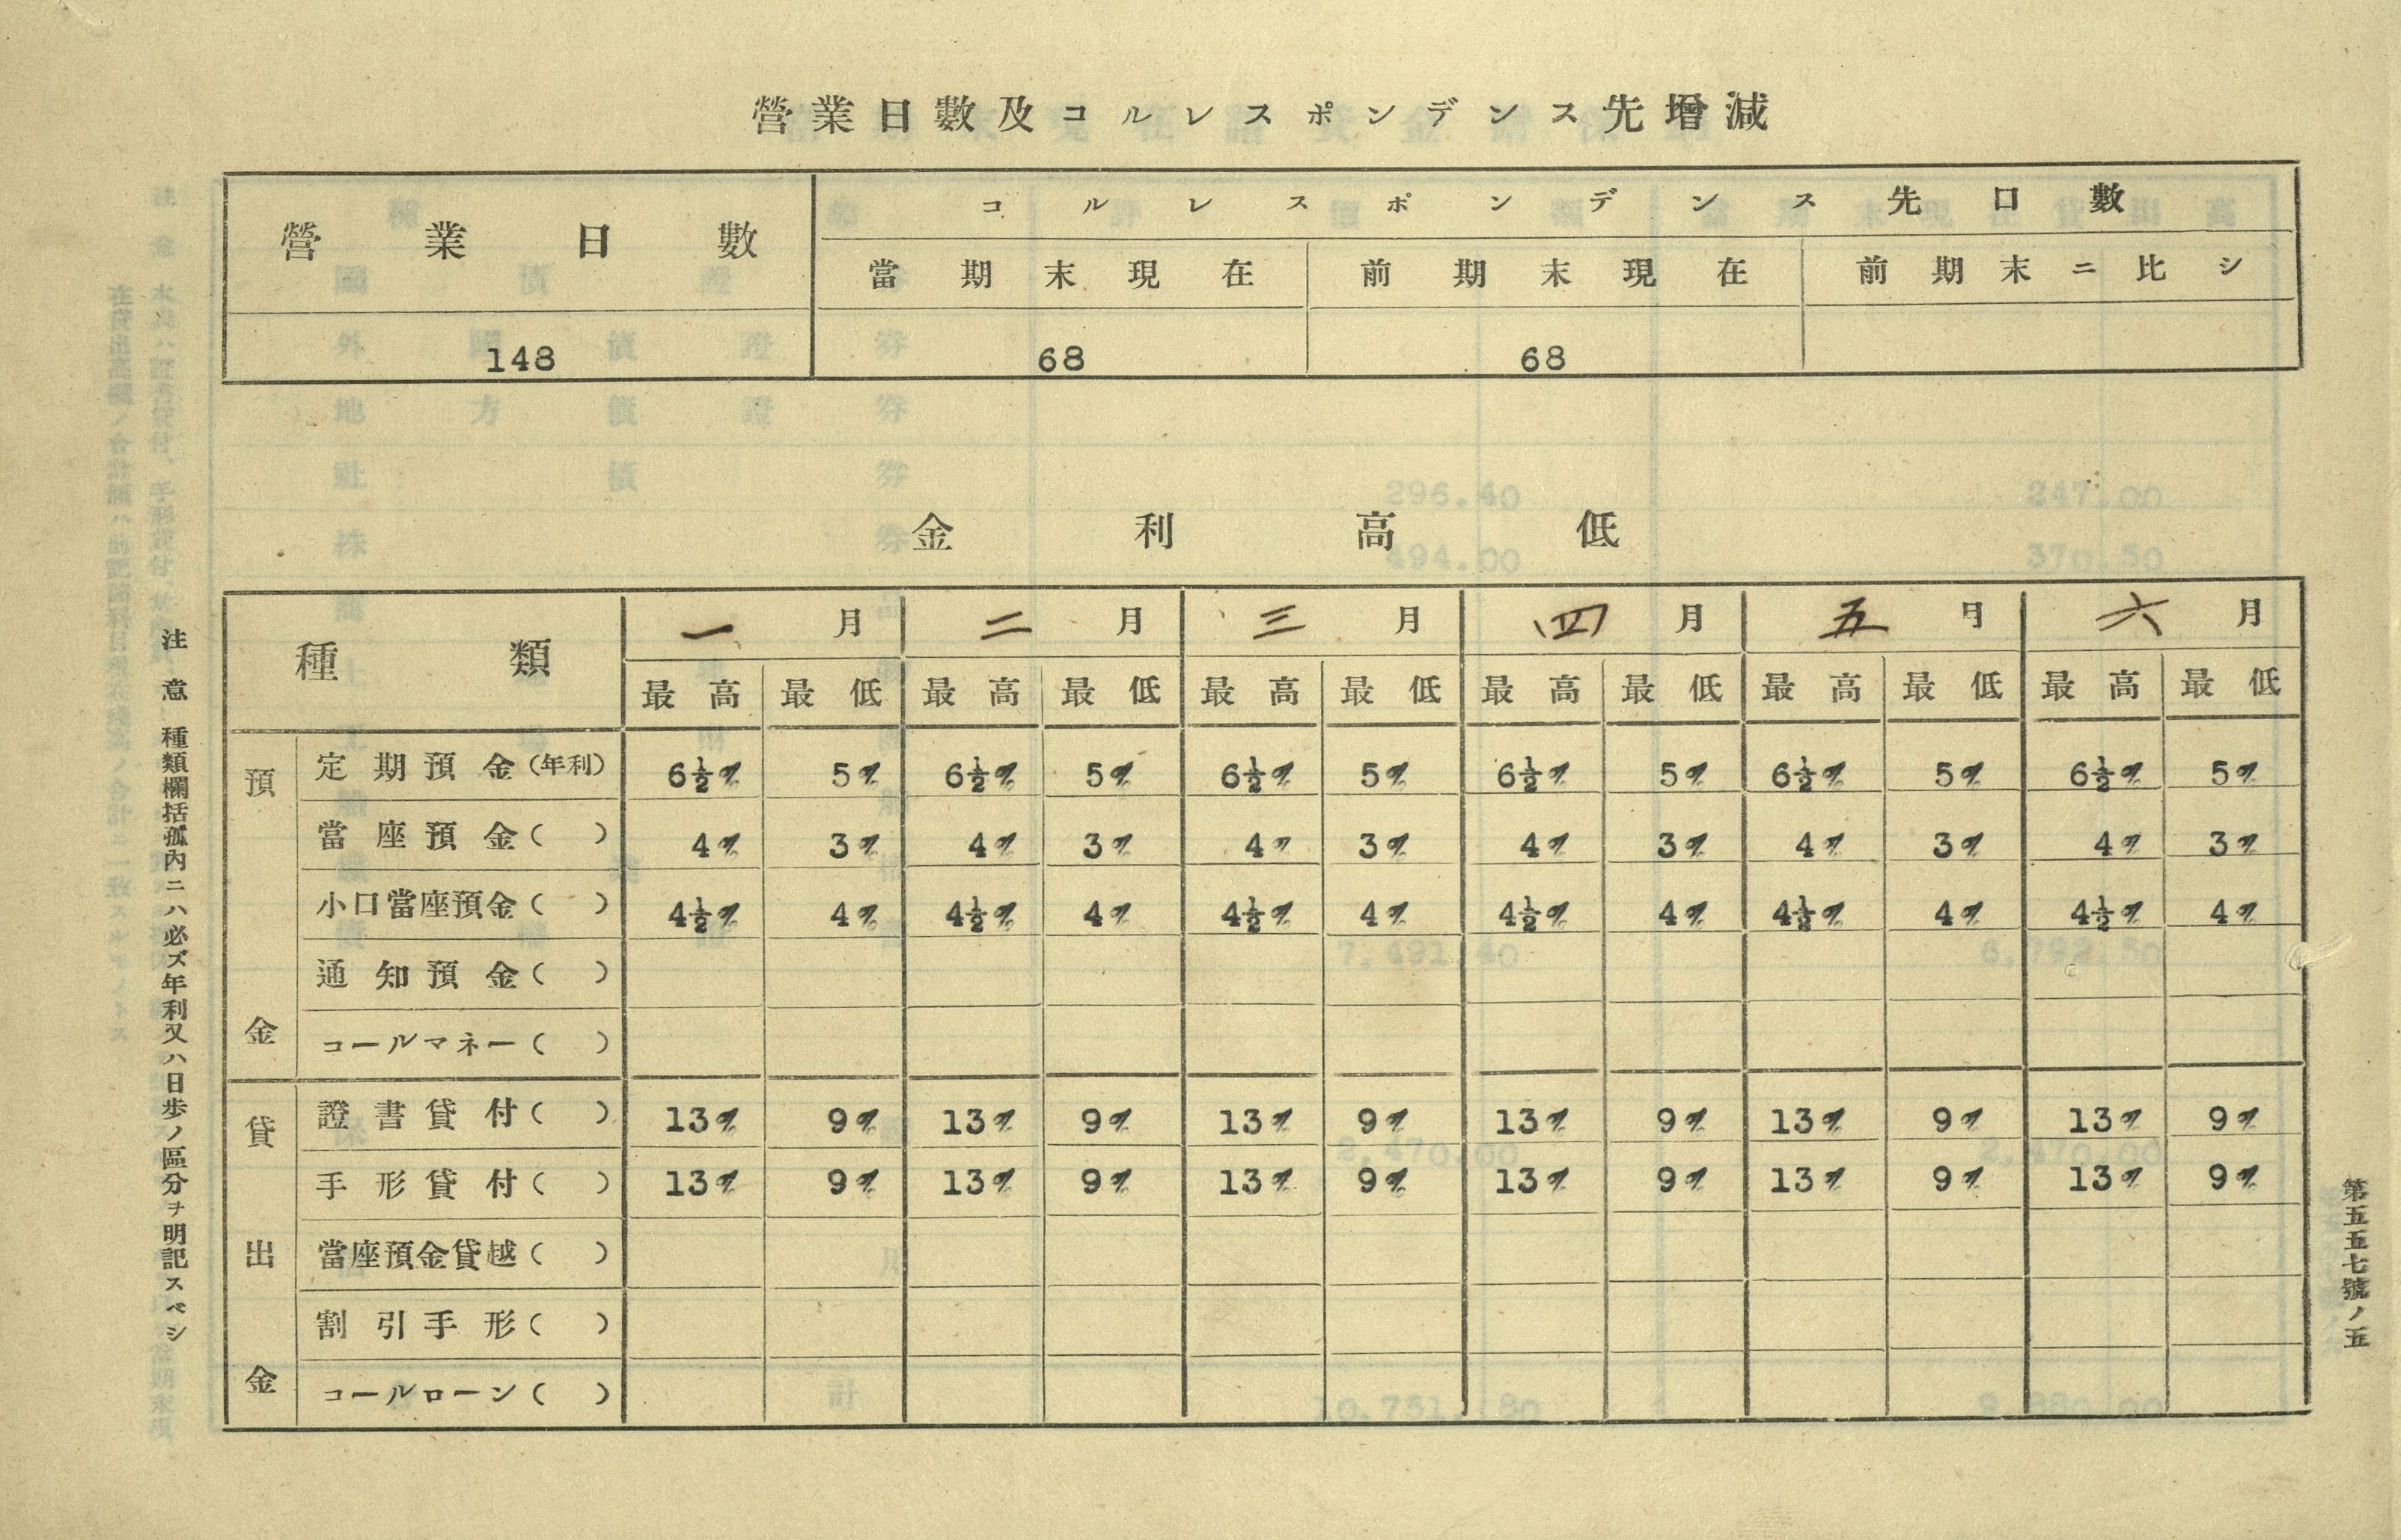 營業日數及コルレスポンデンス先增減
營業日數 コルレスポンデンス先口數
當期末現在 前期末現在 前期末ニ比シ
148 68 68
金利高低
種類 一月 二月 三月 四月 五月 六月
最高 最低 最高 最低 最高 最低 最高 最低 最高 最低 最高 最低
預金
定期預金(年利) 6½% 5% 6½% 5% 6½% 5% 6½% 5% 6½% 5% 6½% 5%
當座預金( ) 4% 3% 4% 3% 4% 3% 4% 3% 4% 3% 4% 3%
小口當座預金( ) 4½% 4% 4½% 4% 4½% 4% 4½% 4% 4½% 4% 4½% 4%
通知預金( )
コールマネー( )
貸出金
證書貸付( ) 13% 9% 13% 9% 13% 9% 13% 9% 13% 9% 13% 9%
手形貸付( ) 13% 9% 13% 9% 13% 9% 13% 9% 13% 9% 13% 9%
當座預金貸越( )
割引手形( )
コールローン( )
注意 種類欄括孤內ニハ必ズ年利又ハ日步ノ區分ヲ明記スベシ
第五五七號ノ五